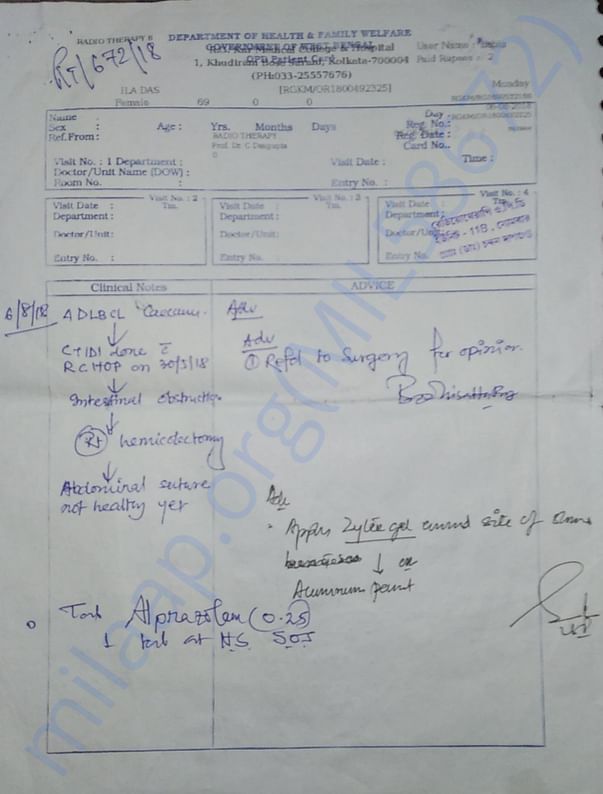 RADIO THERAPY 8
RT/672/18
DEPARTMENT OF HEALTH & FAMILY WELFARE
GOVERNMENT OF WEST BENGAL
R.G. Kar Medical College & Hospital
OPD Patient Card
User Name :
1, Khudiram Bose Sarani, Kolkata-700004
Paid Rupees : 2
(PH:033-25557676)
ILA DAS
[RGKM/RG1800492325]
Monday
Female 69 0 0
Name :
Day :
Sex : Age : Yrs. Months Days
Reg. No.:
Ref.From :
RADIO THERAPY
Reg. Date :
Prof. Dr. C Dasgupta
Card No..
0
Visit No. : 1 Department :
Visit Date :
Time :
Doctor/Unit Name (DOW) :
Room No. :
Entry No. :
Visit No. : 2
Visit No. : 3
Visit No. : 4
Visit Date : Tm.
Visit Date : Tm.
Visit Date : Tm.
Department :
Department :
Department:
Doctor/Unit:
Doctor/Unit:
Doctor/Unit:
Entry No. :
Entry No.
Entry No.
Clinical Notes
ADVICE
6/8/18
ADLBCL Caecum.
Adv
↓
CTIDI done c̄
RCHOP on 30/5/18
↓
Intestinal obstruction
↓
(Rt) hemicolectomy
↓
Abdominal suture
not healthy yet
Adv
① Refd to Surgery for opinion.
Adv
Apply Zytee gel around site of
↓ or
Aluminum paint
Tab Alprazolam (0.25)
1 tab at HS SOS
milaap.org(MIL58672)